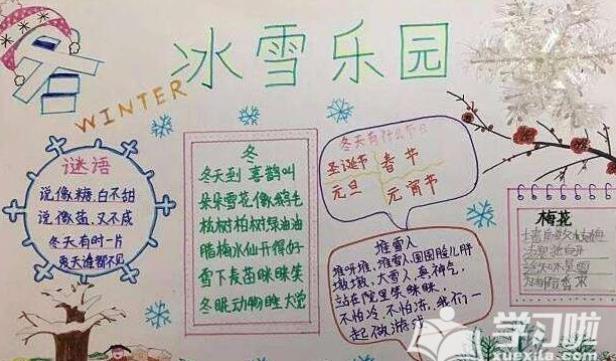 冬
冰雪乐园
WINTER
谜语
说像糖,白不甜
说像盐,又不咸
冬天有时一片
夏天谁都不见
冬
冬天到 喜鹊叫
朵朵雪花像鹅毛
松树柏树绿油油
腊梅水仙开得好
雪下麦苗眯眯笑
冬眠动物睡大觉
冬天有什么节日
圣诞节 春节
元旦 元宵节
堆雪人
堆呀堆,堆雪人,圆圆脸儿胖
墩墩,大雪人,真神气,
站在院里笑眯眯,
不怕冷,不怕冻,我们一
起做游戏
梅花
墙角数枝梅
学习啦